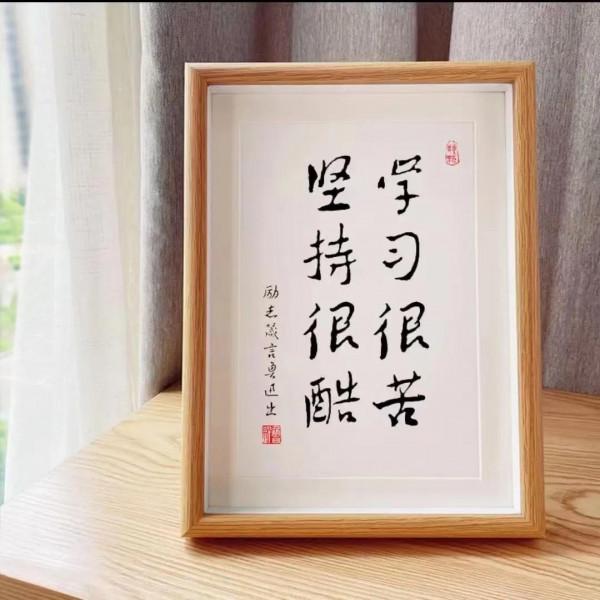 学习很苦
坚持很酷
励志箴言鲁迅出